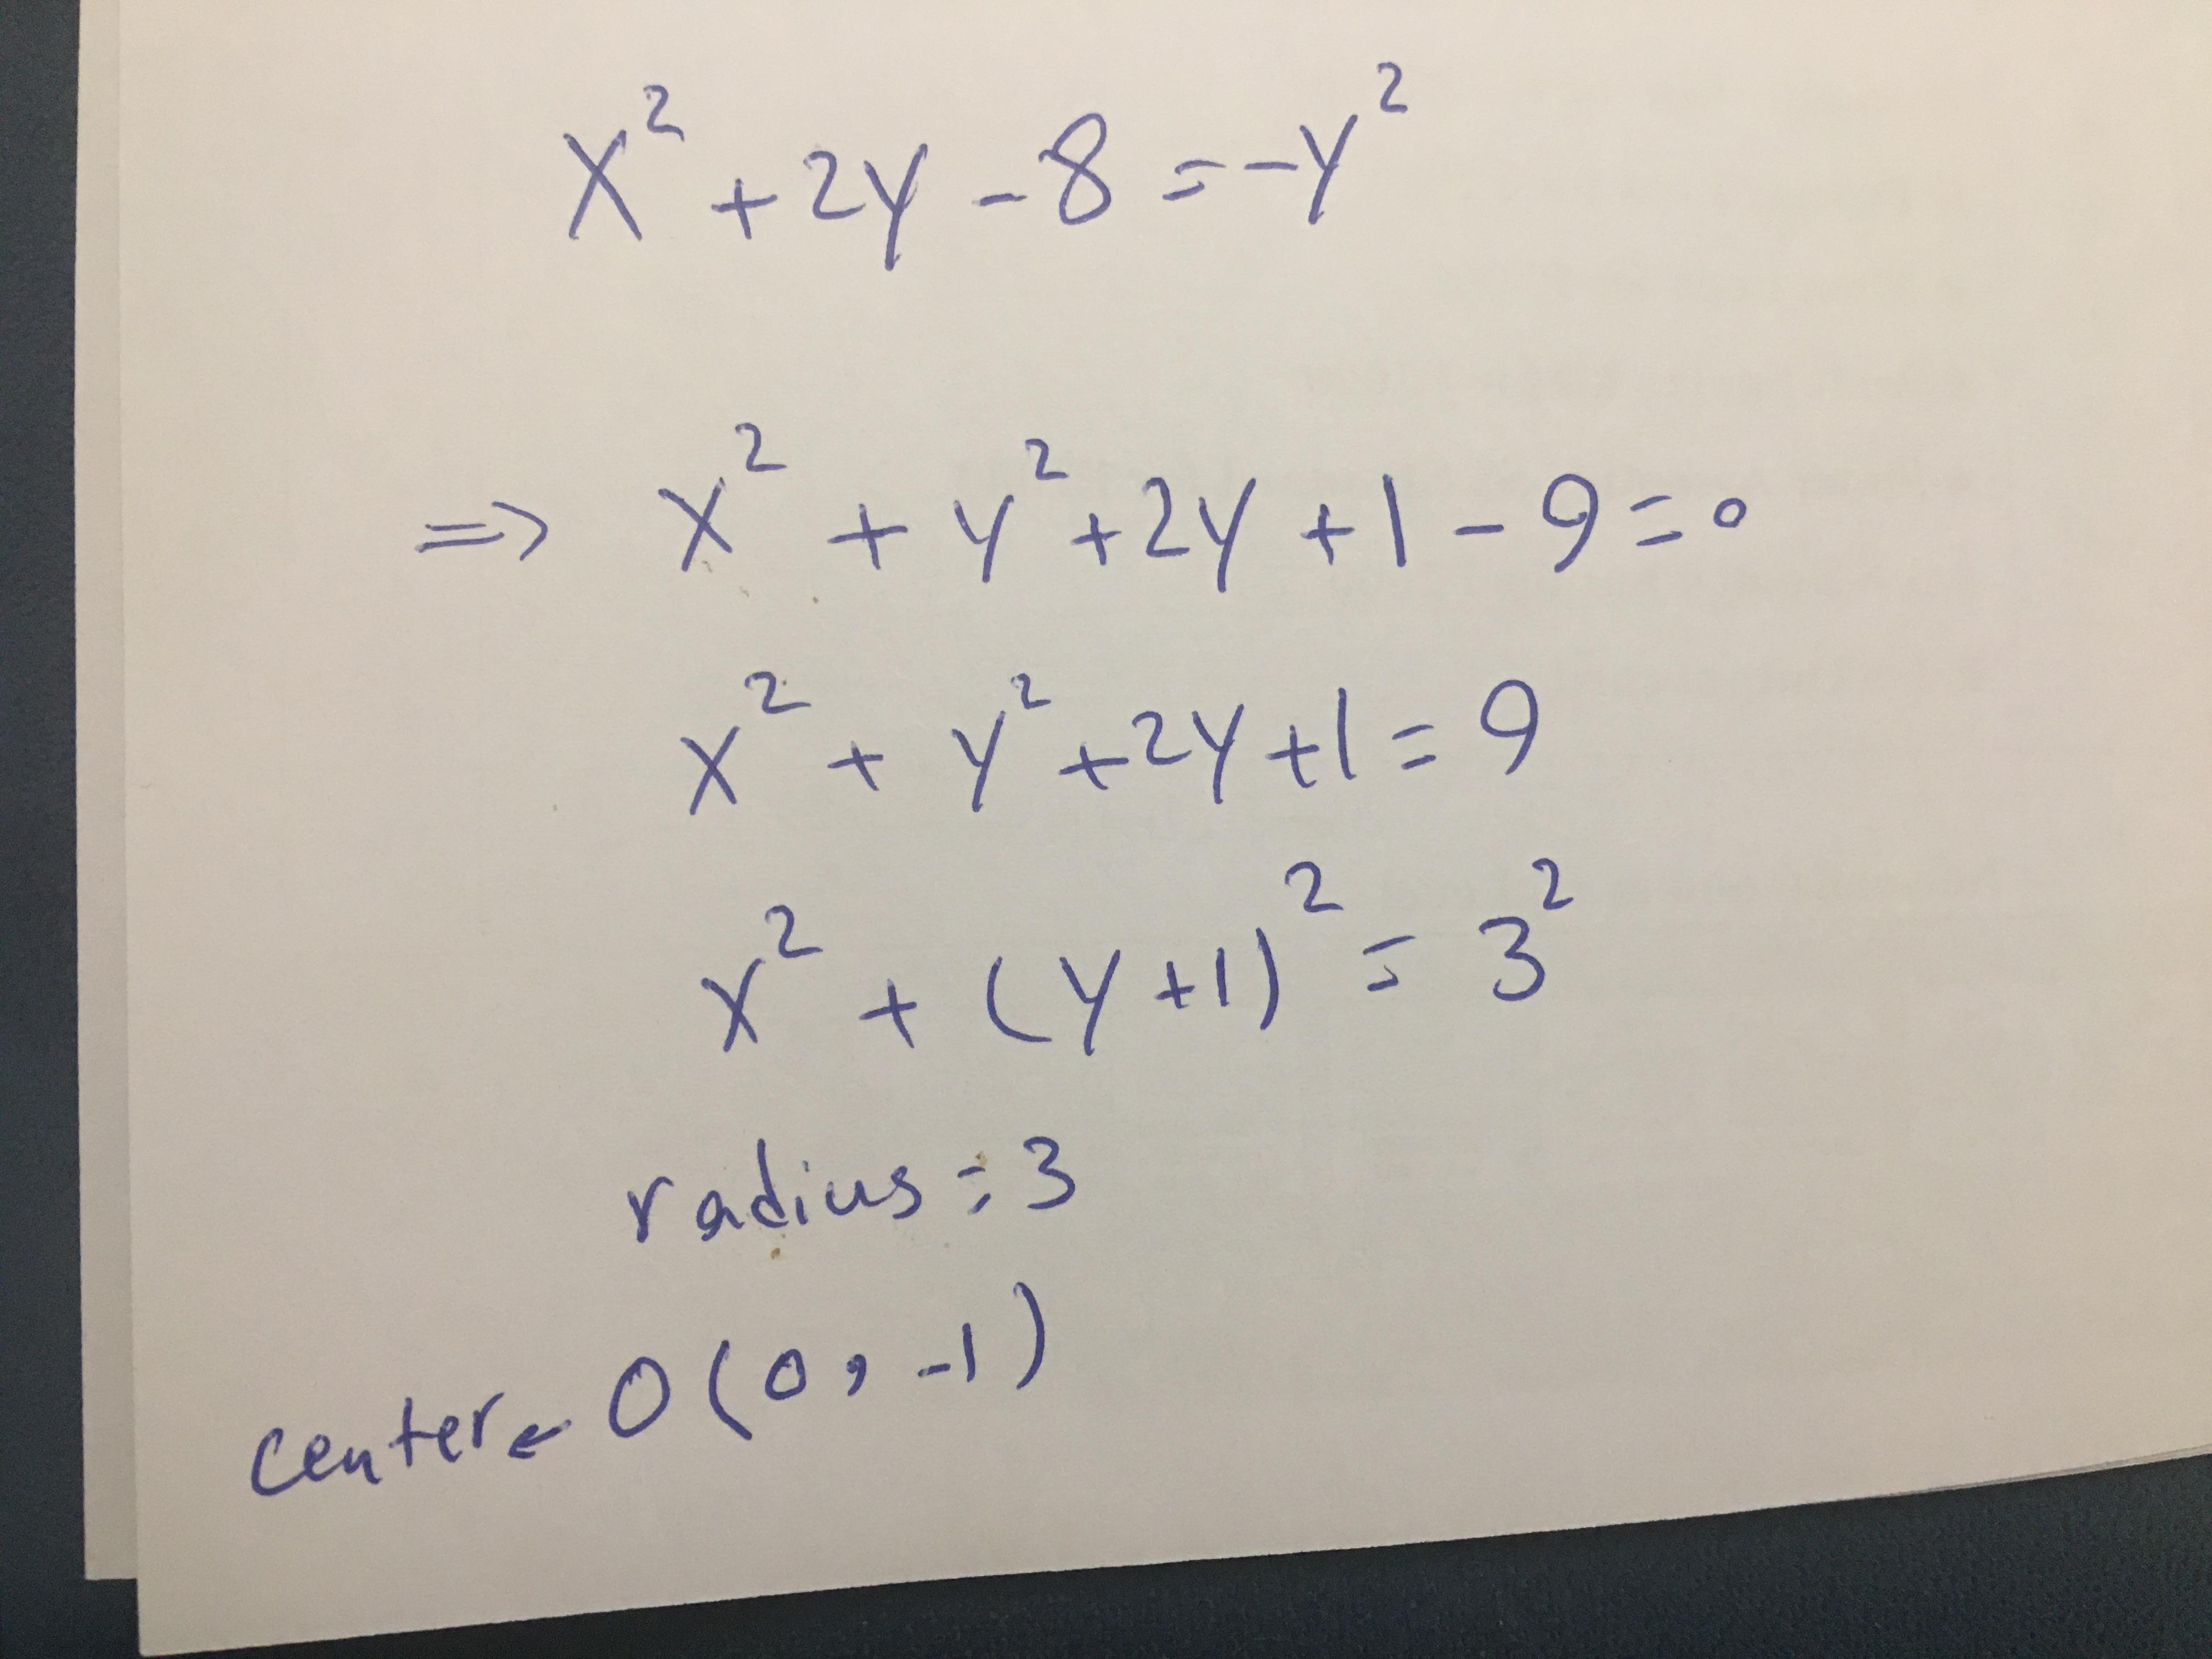 x² + 2y - 8 = -y²
=> x² + y² + 2y + 1 - 9 = 0
x² + y² + 2y + 1 = 9
x² + (y + 1)² = 3²
radius = 3
center ← O(0, -1)